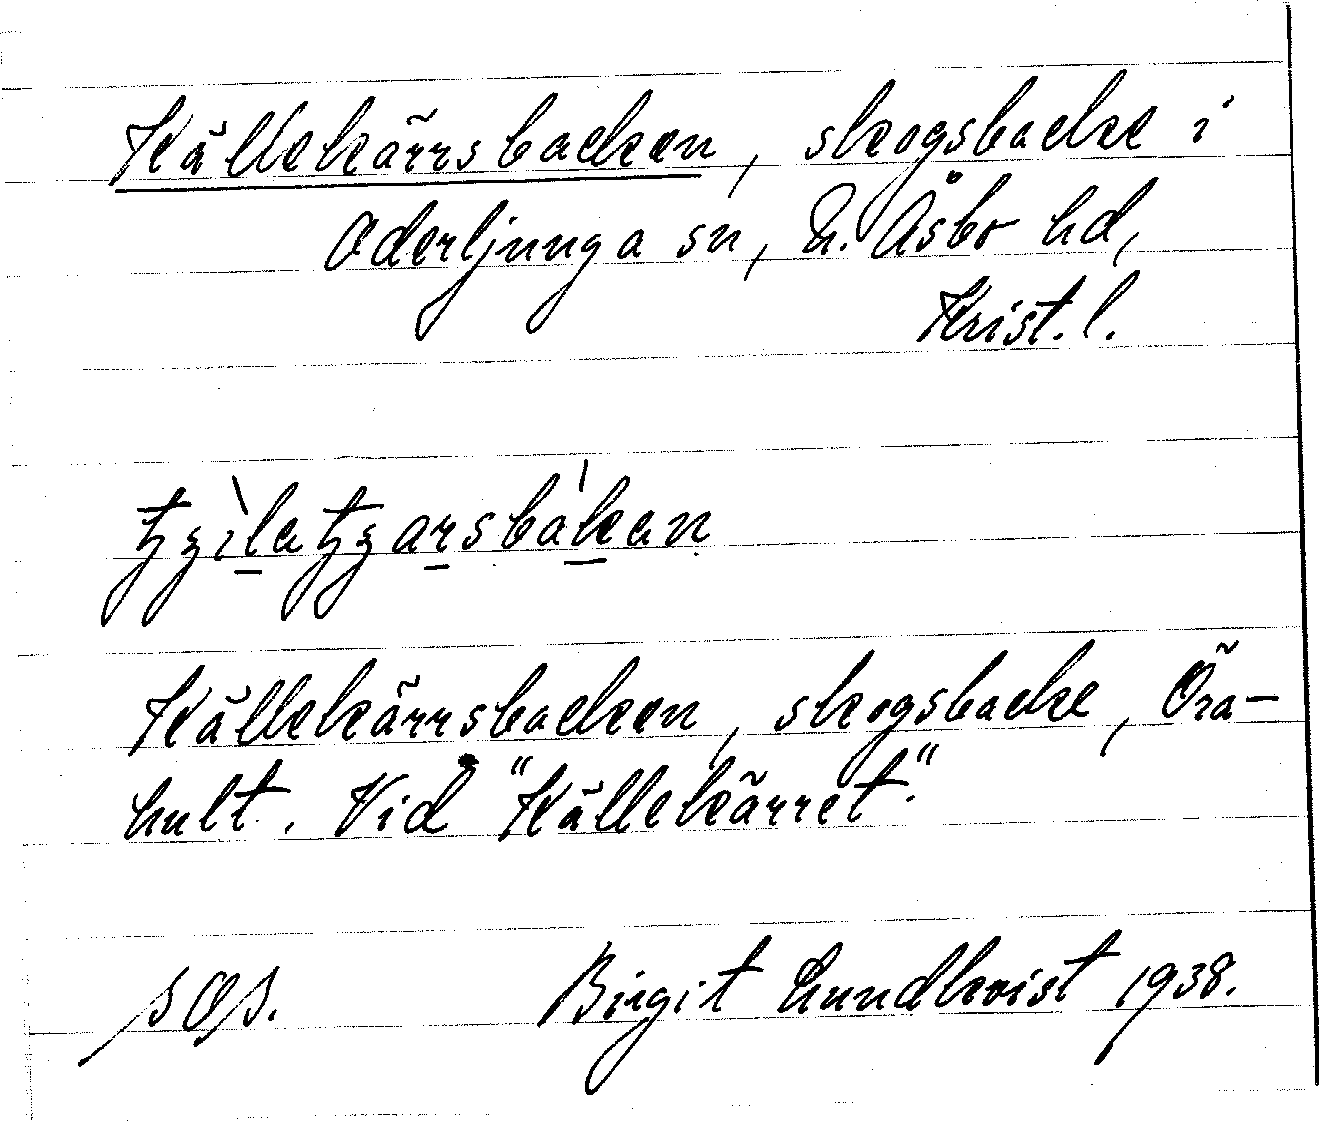 Källekärrsbacken, skogsbacke i
Oderljunga sn, N. Åsbo hd,
Krist. l.
Källekärrsbacken, skogsbacke, Öra-
hult. Vid "Källekärret".
Birgit Lundkvist 1938.